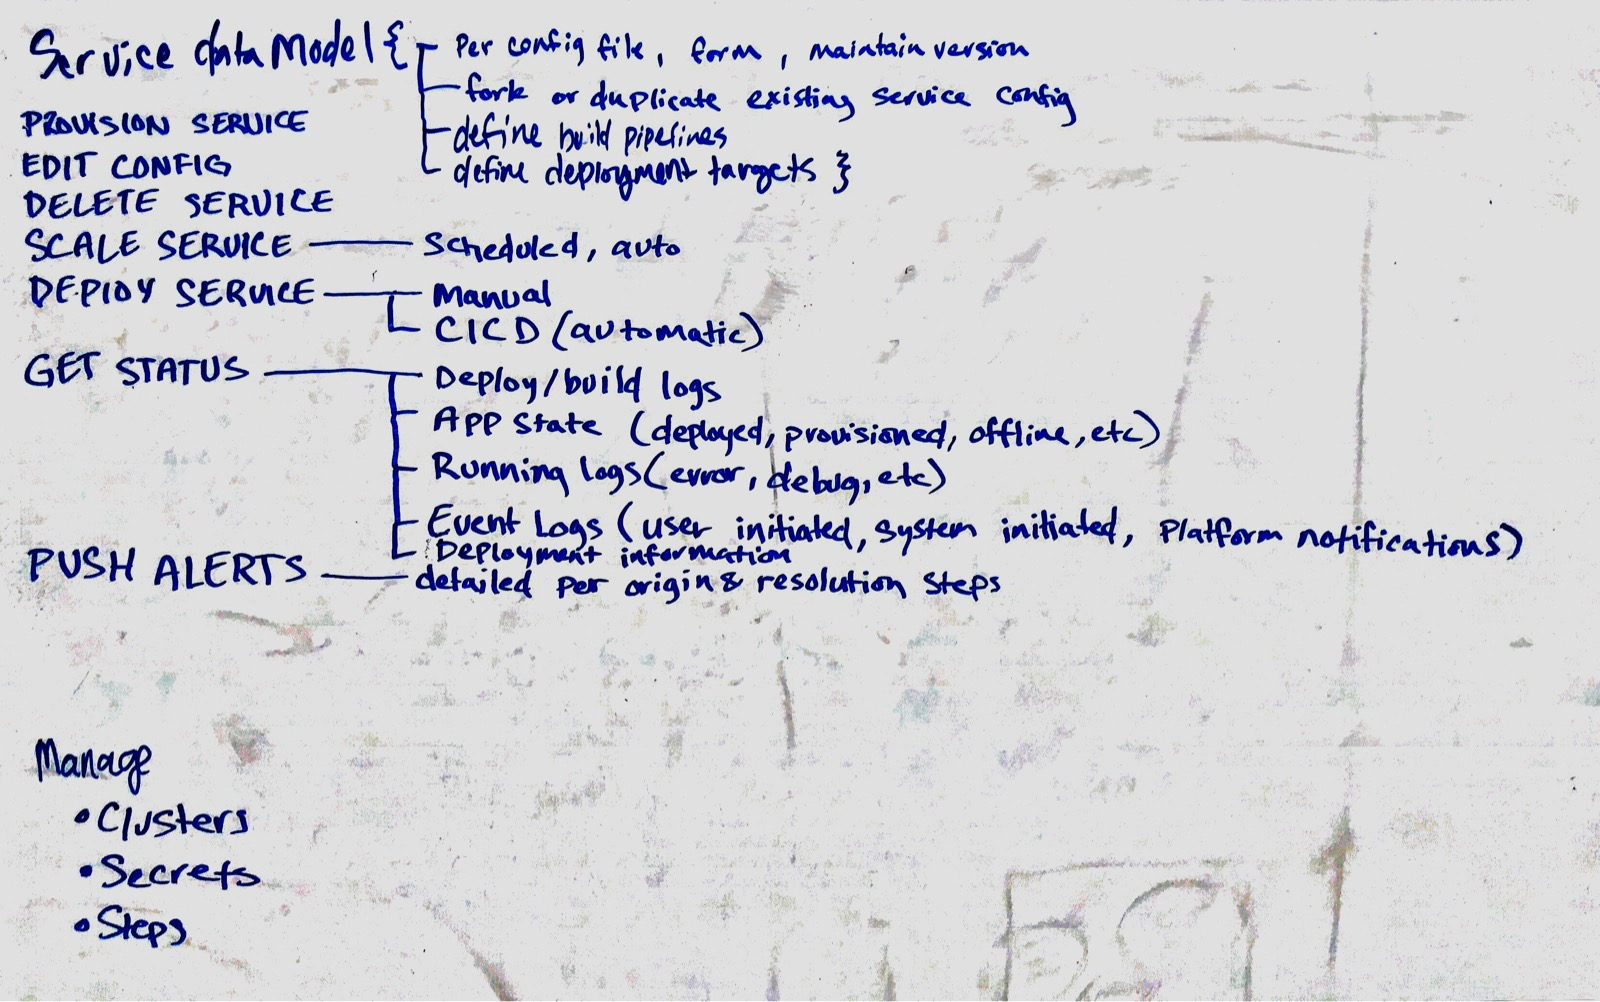 Service data Model {
Per config file, form, maintain version
fork or duplicate existing service config
define build pipelines
define deployment targets }
PROVISION SERVICE
EDIT CONFIG
DELETE SERVICE
SCALE SERVICE
Scheduled, auto
DEPLOY SERVICE
Manual
CICD (automatic)
GET STATUS
Deploy/build logs
App state (deployed, provisioned, offline, etc)
Running logs (error, debug, etc)
Event Logs (user initiated, system initiated, Platform notifications)
Deployment information
PUSH ALERTS
detailed per origin & resolution steps
Manage
• Clusters
• Secrets
• Steps